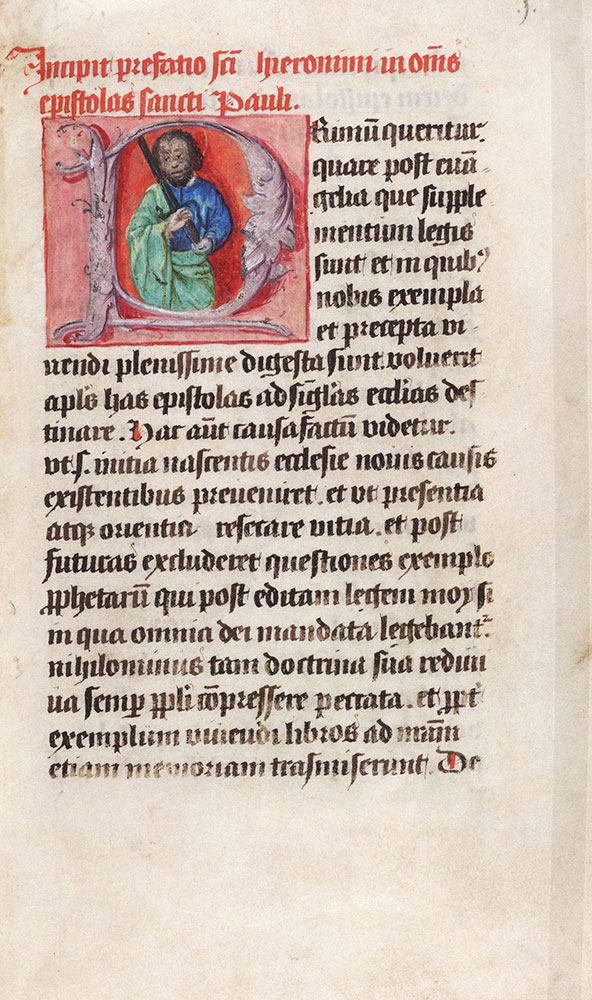 Incipit prefatio scī hieronimi in om̄s
epistolas sancti Pauli.
PRimū queritur.
quare post euā
gelia que supple
mentum legis
sunt et in quibꝰ
nobis exempla
et precepta vi
uendi plenissime digesta sunt. voluerit
apl̄s has epistolas ad siḡlas eccl̄ias des
tinare. Hac aūt causa factū videtur.
vt .s. initia nascentis ecclesie nouis causis
existentibus preueniret. et vt presentia
atqꝫ orientia resecare vitia. et post
futuras excluderet questiones exemplo
ꝓphetarū qui post editam legem moysi
in qua omnia dei mandata legebantᷣ
nihilominus tam doctrina sua rediui
ua semꝑ ppl̄i cōpressere peccata. et ꝓpt̄
exemplum viuendi libros ad nr̄am
etiam memoriam trasmiserunt. De